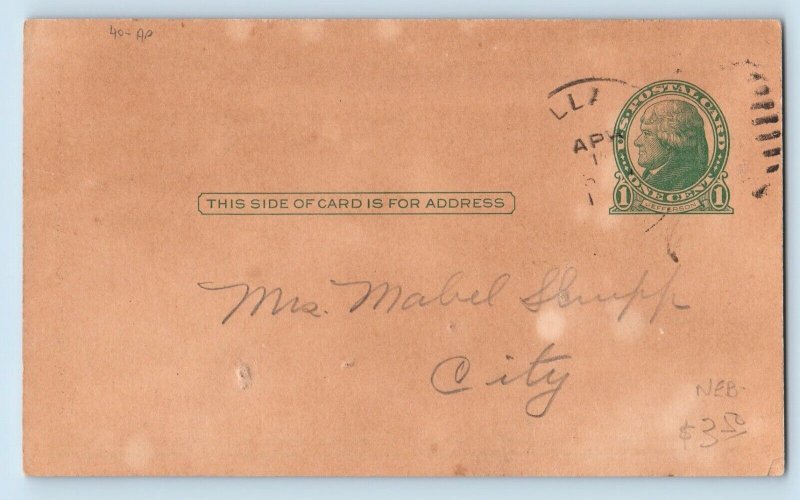 40-AP
LLA
APR
1
U.S. POSTAL CARD
ONE CENT
1 JEFFERSON 1
THIS SIDE OF CARD IS FOR ADDRESS
Mrs. Mabel
City
NEB.
$3.50